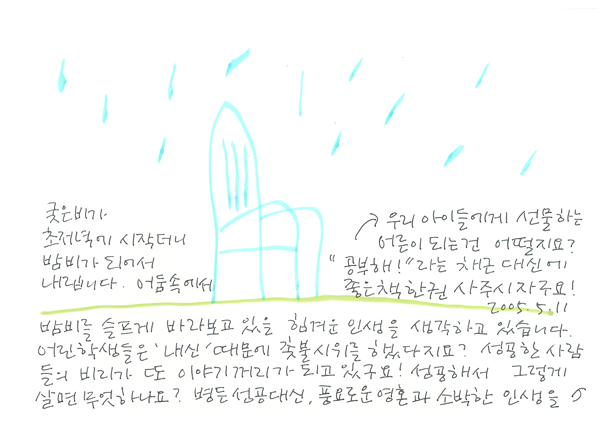 궂은비가
초저녁에 시작더니
밤비가 되어서
내립니다. 어둠속에서
밤비를 슬프게 바라보고 있을 힘겨운 인생을 생각하고 있습니다.
어린학생들은 '내신' 때문에 촟불시위를 했다지요? 성공한 사람
들의 비리가 또 이야기거리가 되고 있구요! 성공해서 그렇게
살면 무엇하나요? 병든성공대신, 풍요로운영혼과 소박한 인생을
우리 아이들에게 선물하는
어른이 되는건 어떨지요?
"공부해!"라는 채근 대신에
좋은책한권 사주시자구요!
2005.5.11